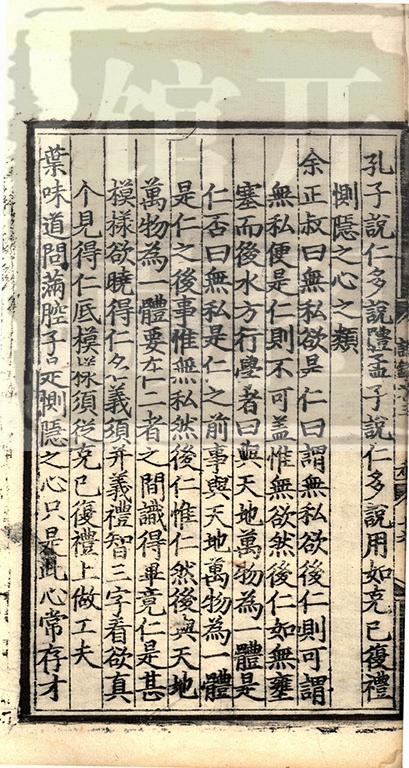 孔子說仁多說體孟子說仁多說用如克已復禮
惻隱之心之類
余正叔曰無私欲是仁曰謂無私欲後仁則可謂
無私便是仁則不可盖惟無欲然後仁如無壅
塞而後水方行學者曰與天地萬物為一體是
仁否曰無私是仁之前事與天地萬物為一體
是仁之後事惟無私然後仁惟仁然後與天地
萬物為一體要在二者之間識得畢竟仁是甚
模樣欲曉得仁名義須并義禮智三字看欲真
个見得仁底模樣須從克已復禮上做工夫
葉味道問滿腔子是惻隱之心只是此心常存才